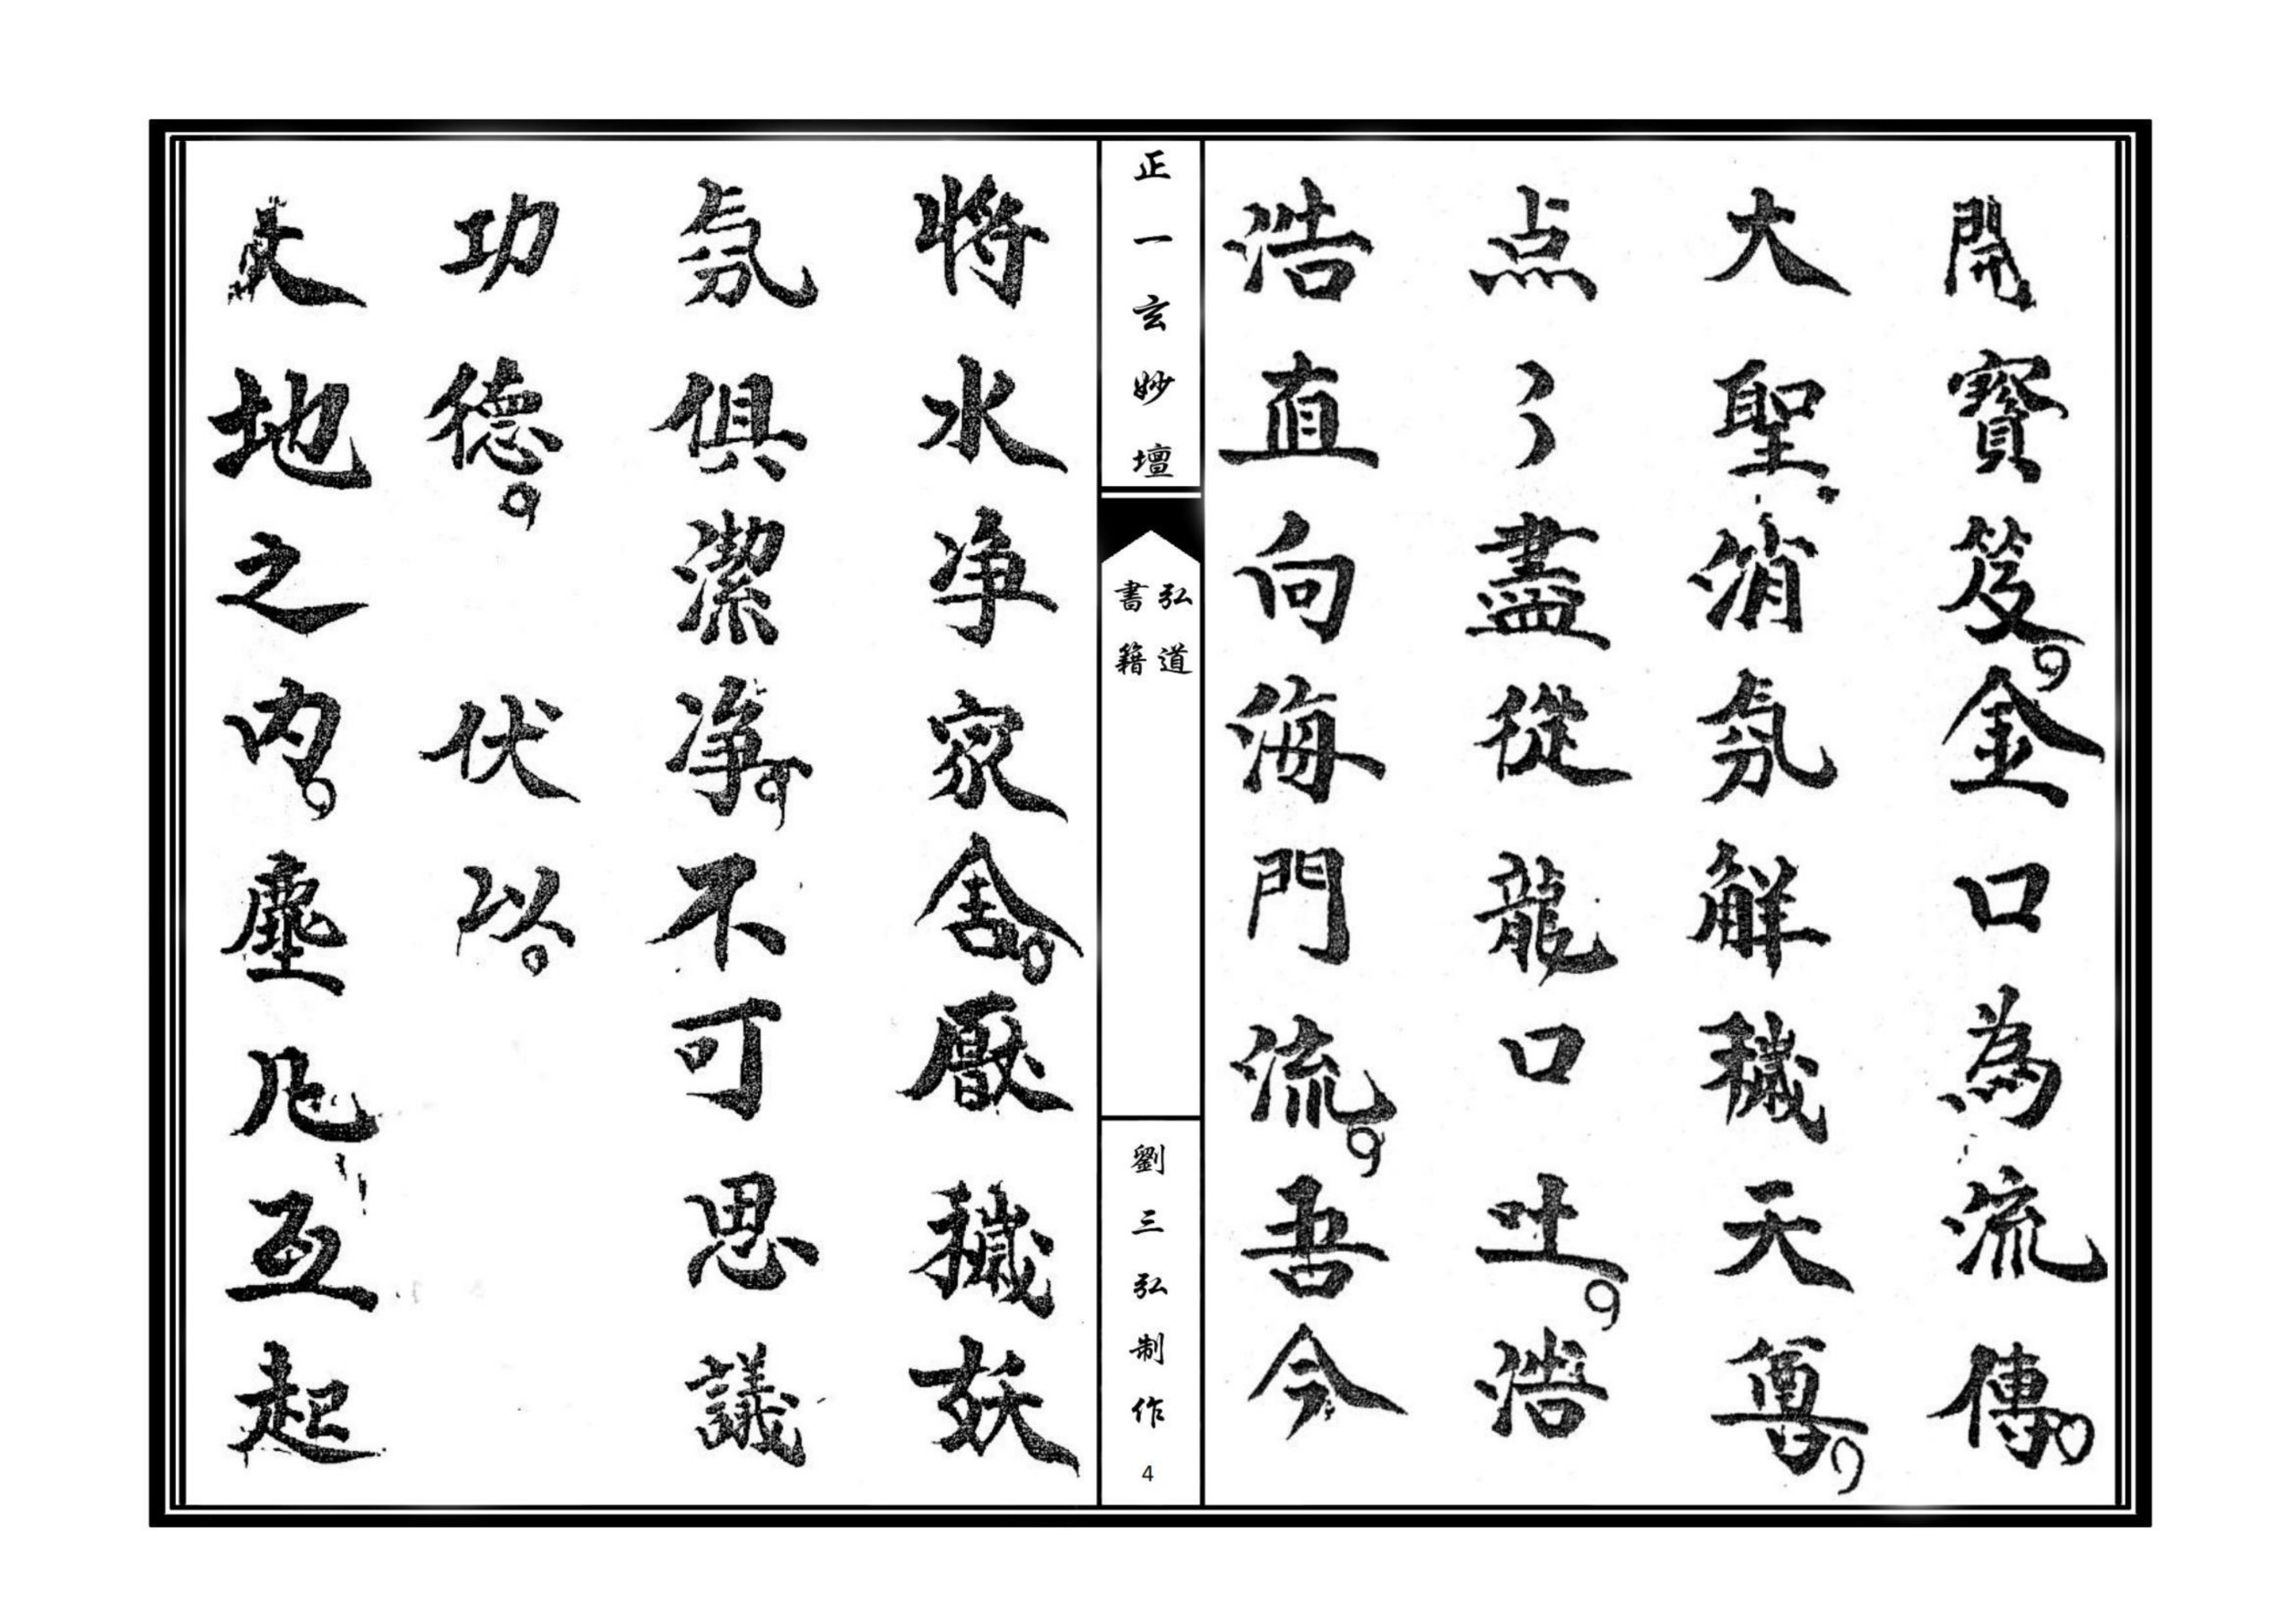 開寶笈。金口為流傳。
大聖消氛解穢天尊。
点〻盡從龍口吐。浩
浩直向海門流。吾今
正一玄妙壇
弘道書籍
劉三弘制作
4
將水净家舍。厭穢妖
氛俱潔净。不可思議
功德。 伏以。
地之内。塵凡互起